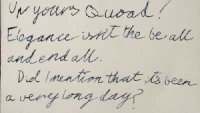 In yours Quoad!
Elegance isn't the be all
and end all.
Did I mention that its been
a very long day?